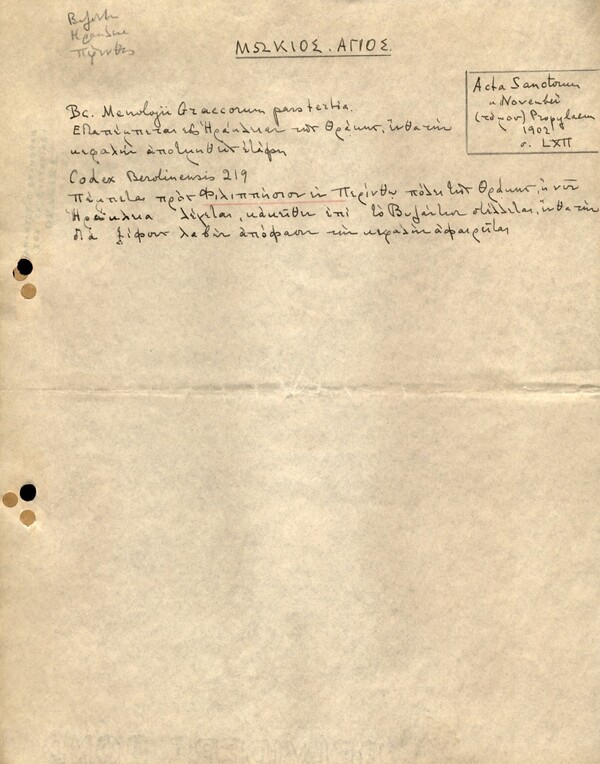 Βυζάντ
Ηράκλει
Πέρινθος
ΜΩΚΙΟΣ. ΑΓΙΟΣ.
Acta Sanctorum
Novembri
(τόμον) Propylaeum
1902
σ. LXII
Bc. Menologii Graecorum pars tertia.
εἰς Ἡράκλειαν τῆς Θράκης, ἔνθα τὴν
κεφαλὴν ἀποτμηθεὶς ἐτάφη
Codex Berolinensis 219
Πέμπεται πρὸς Φιλιππήσιον ἐν Περίνθῳ πόλει τῆς Θράκης, ἡ νῦν
Ἡράκλεια λέγεται, κἀκεῖθεν ἐπὶ τὸ Βυζάντιον στέλλεται, ἔνθα τὴν
διὰ ξίφους λαβὼν ἀπόφασιν τὴν κεφαλὴν ἀφαιρεῖται